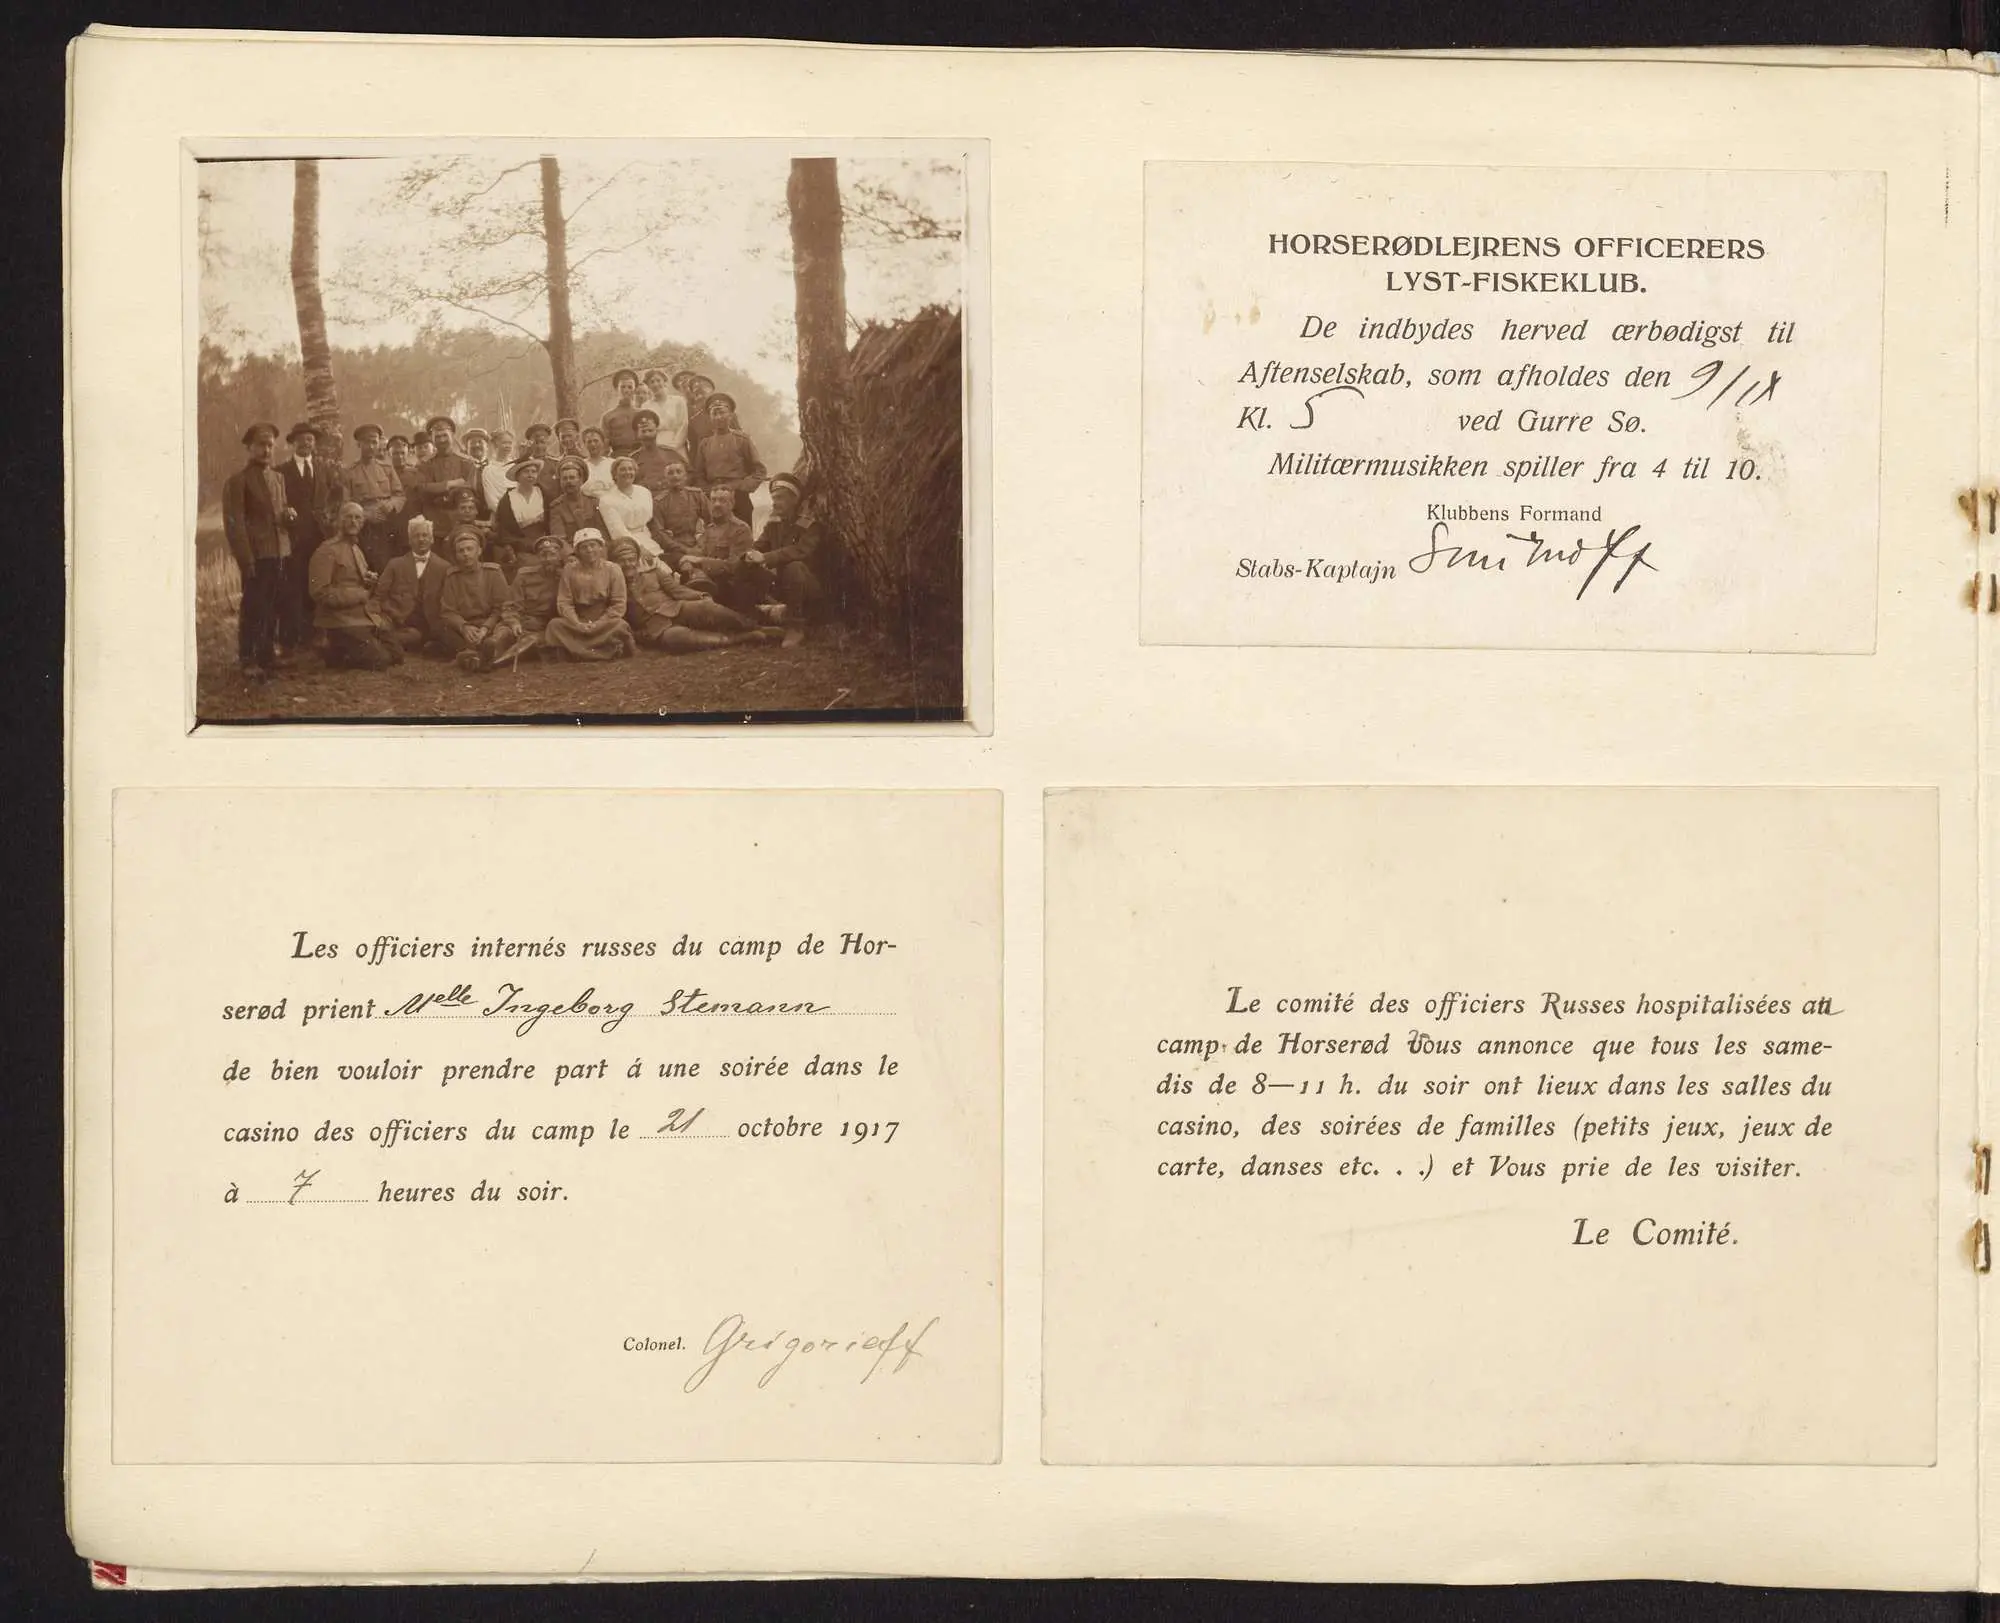 HORSERØDLEJRENS OFFICERERS
LYST-FISKEKLUB.
De indbydes herved ærbødigst til
Aftenselskab, som afholdes den 9/IX
Kl. 5 ved Gurre Sø.
Militærmusikken spiller fra 4 til 10.
Klubbens Formand
Stabs-Kaptajn Smirnoff
Les officiers internés russes du camp de Hor-
serød prient Melle Ingeborg Stemann
de bien vouloir prendre part á une soirée dans le
casino des officiers du camp le 21 octobre 1917
à 7 heures du soir.
Colonel. Grigorieff
Le comité des officiers Russes hospitalisées au
camp de Horserød Vous annonce que tous les same-
dis de 8—11 h. du soir ont lieux dans les salles du
casino, des soirées de familles (petits jeux, jeux de
carte, danses etc. . .) et Vous prie de les visiter.
Le Comité.